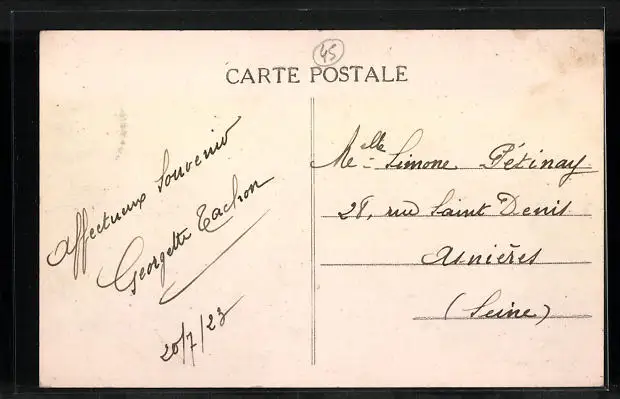 45
CARTE POSTALE
Affectueux Souvenir
Georgette Tachon
20/7/23
Melle Simone Pézinay
28, rue Saint Denis
Asnières
(Seine)